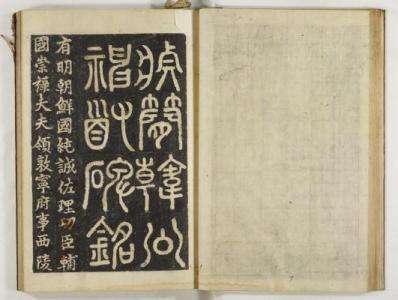 簡韓公
神道碑銘
有明朝鮮國純誠佐理功臣輔
國崇祿大夫領敦寧府事西陵